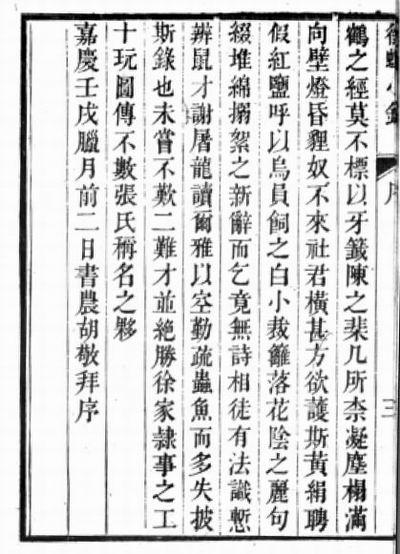 銜蟬小錄
序
三
鶴之經莫不標以牙籤陳之棐几所柰凝塵榻滿
向壁燈昏貍奴不來社君橫甚方欲護斯黃絹聘
假紅鹽呼以烏員飼之白小裁籬落花陰之麗句
綴堆綿搦絮之新辭而乞竟無詩相徒有法識慙
辨鼠才謝屠龍讀爾雅以空勤疏蟲魚而多失披
斯錄也未嘗不歎二難才並絕勝徐家隷事之工
十玩圖傳不數張氏稱名之夥
嘉慶壬戌臘月前二日書農胡敬拜序